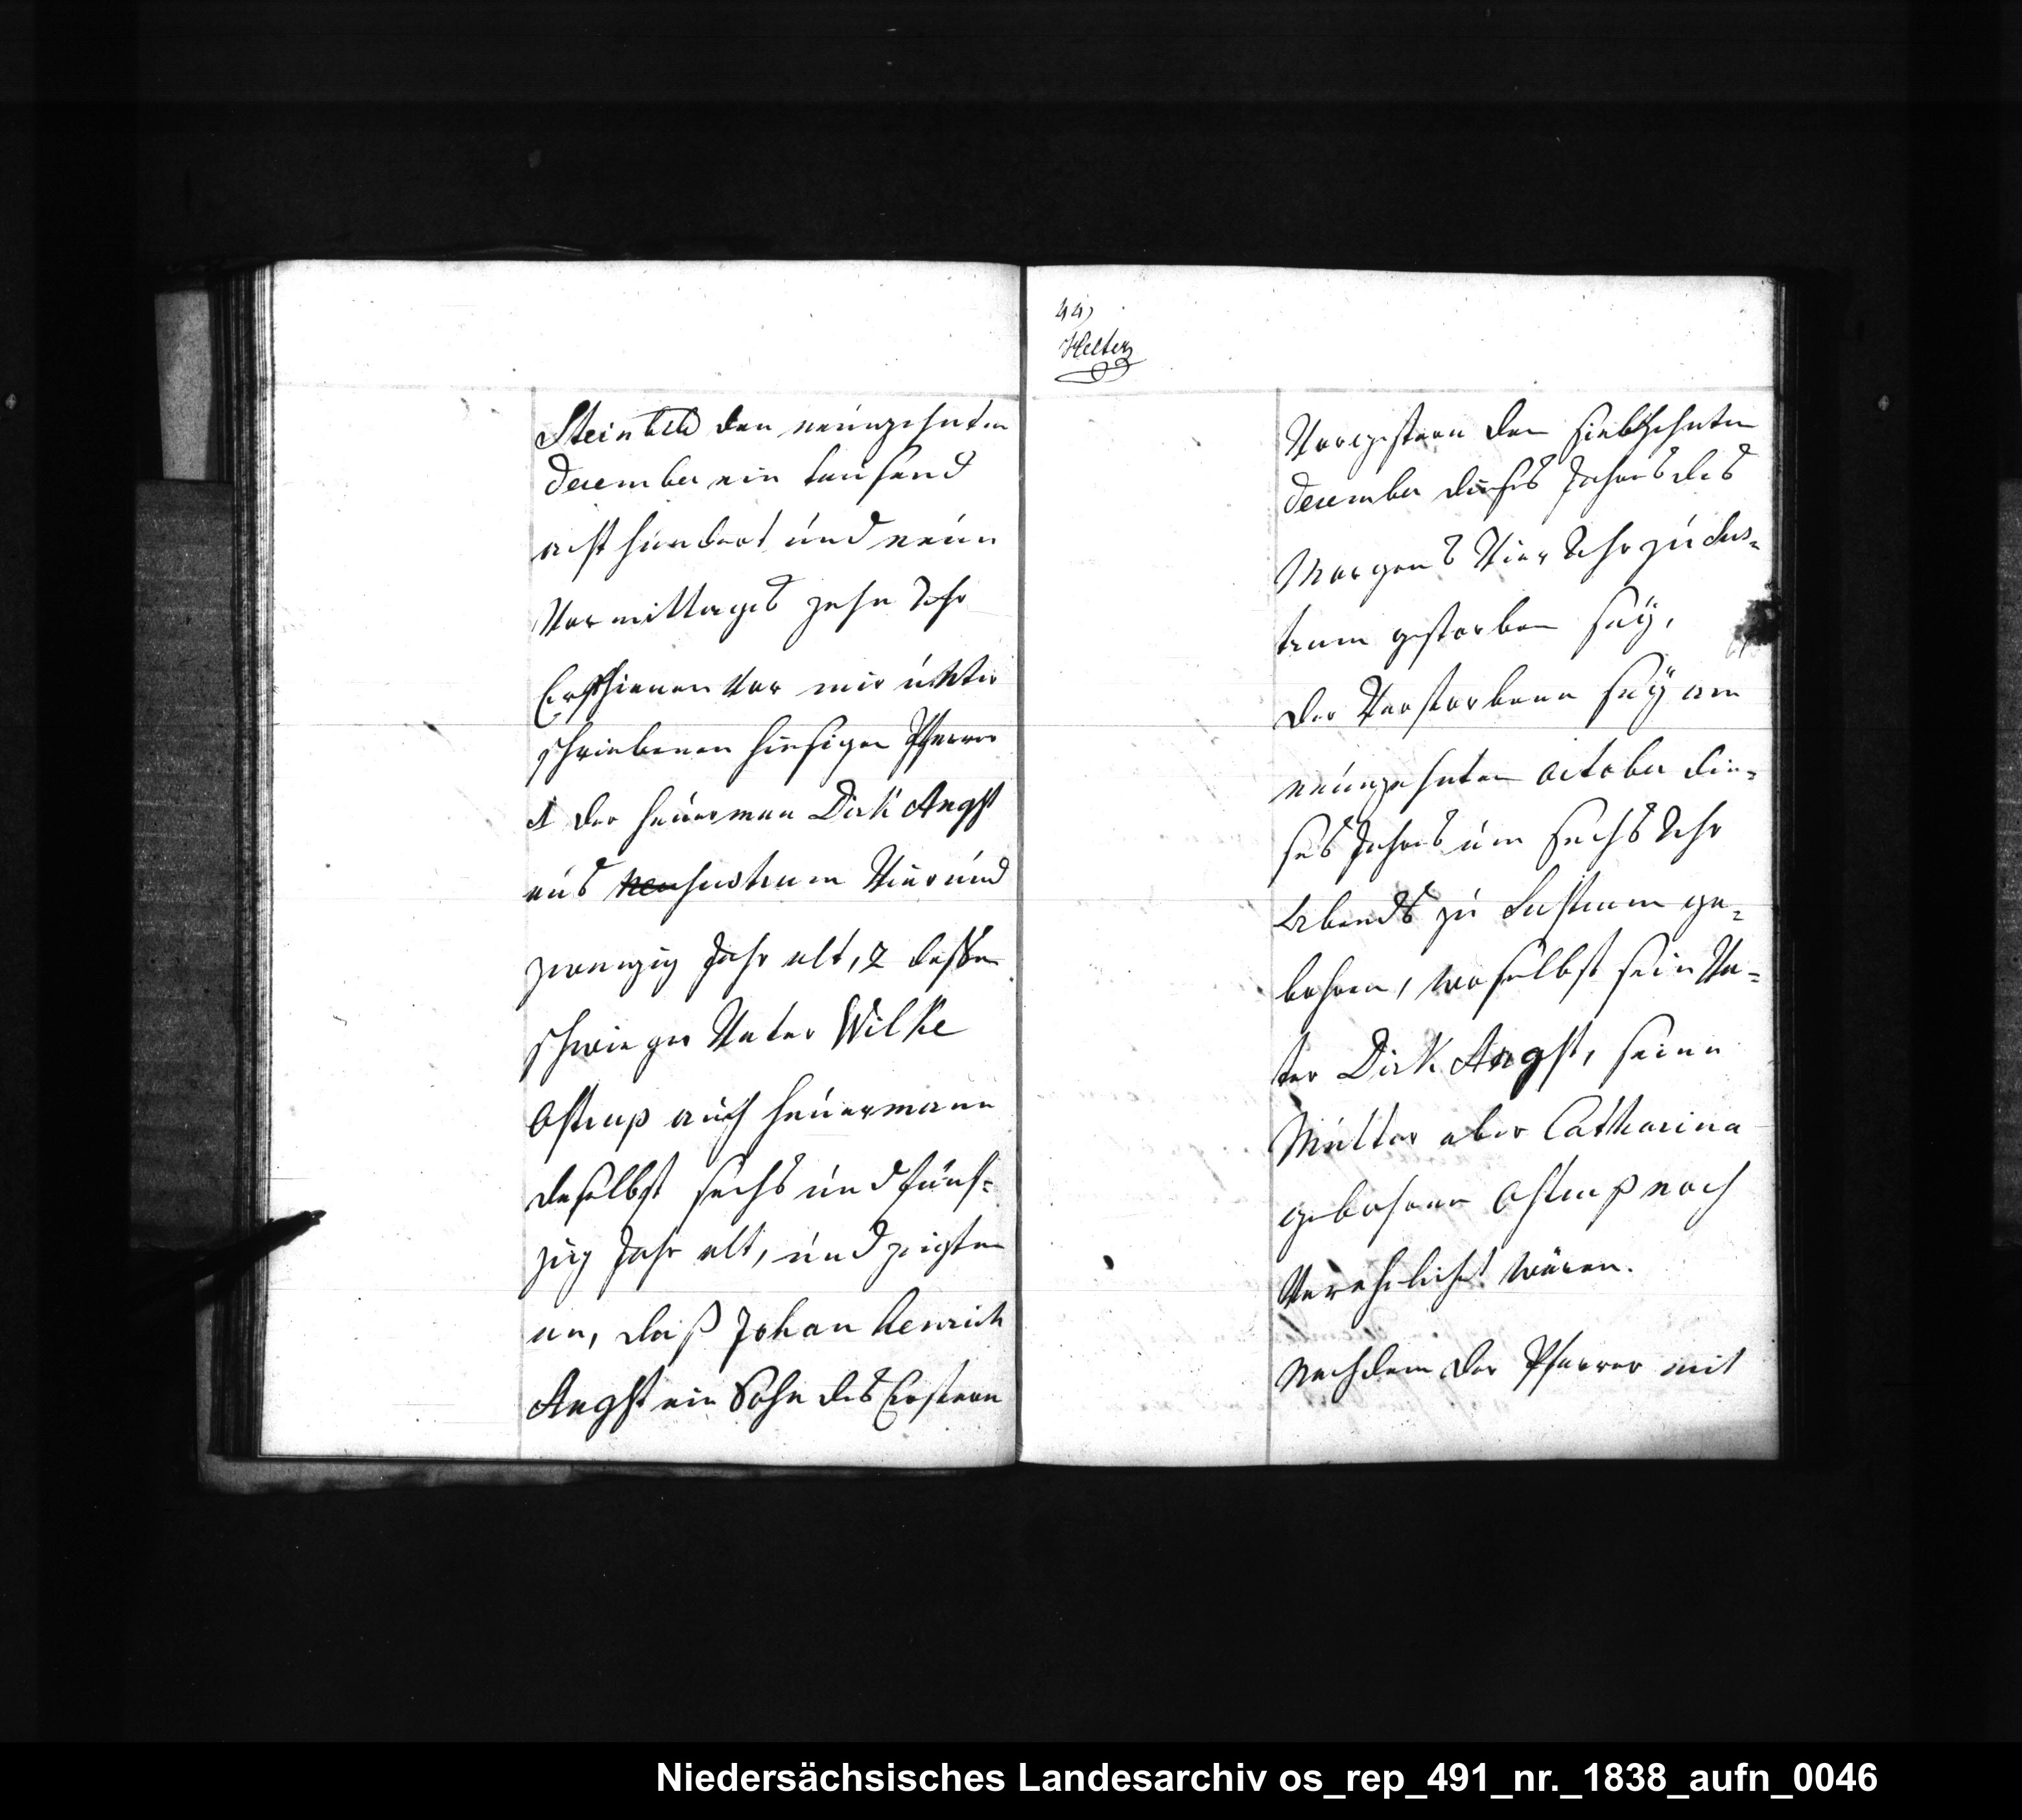 Steinbild den neunzehnten
December ein tausend
acht hundert und neun
Vormittags zehn Uhr
Erschienen vor mir unter
schriebenen hiesigen Pfarrer
1 der heuerman Dirk Angst
aus Vier und
zwanzig Jahr alt, 2 dessen
schwieger Vater Wilke
Ostrup auch heuermann
daselbst sechs und funf-
zig Jahr alt, und zeigten
an, daß Johan Henrich
Angst ein Sohn des Erstern
44,
Vorgestern den siebzehnten
December dieses Jahres des
Morgens Vier Uhr zu dus-
trum gestorben seÿ,
der Verstorbene seÿ am
neunzehnten October die-
ses Jahres um sechs Uhr
Abends zu Sustrum ge-
bohren, woselbst sein Va-
ter Dirk Angst, seine
Mutter aber Catharina
gebohrne Ostrup noch
Verehelicht wären.
Nachdem der Pfarrer mit
Niedersächsisches Landesarchiv os_rep_491_nr._1838_aufn_0046